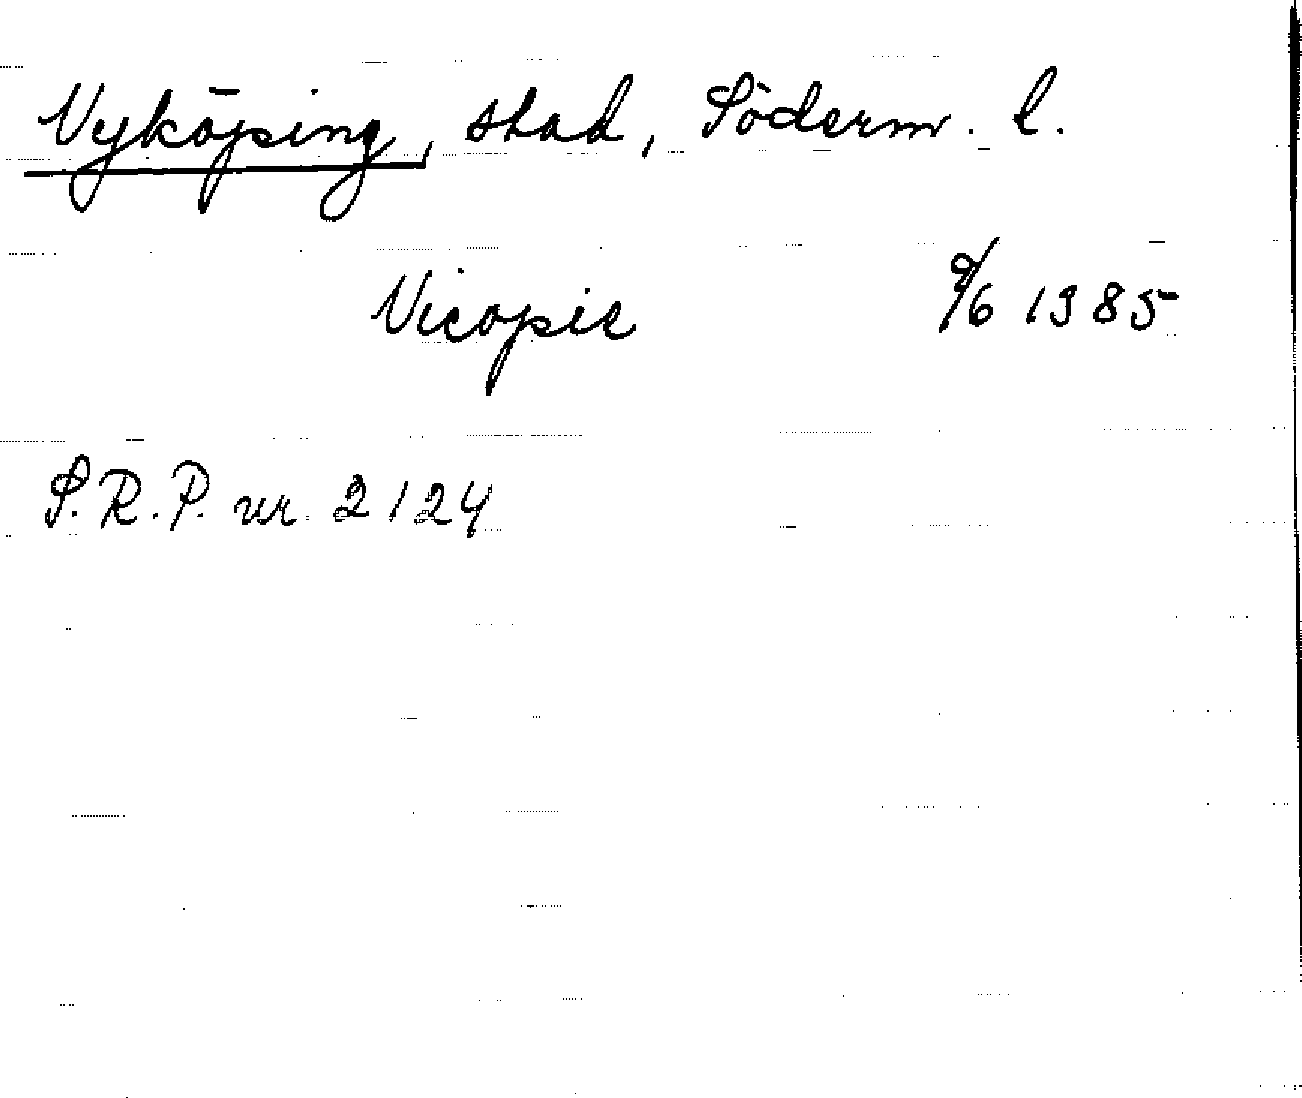 Nyköping, stad, Söderm. l.
Nicopie 9/6 1385
S.R.P. nr 2124